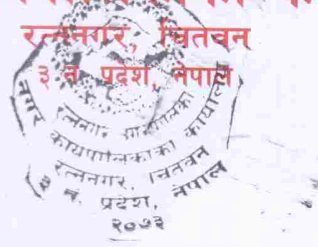 रत्ननगर, चितवन
३ नं. प्रदेश, नेपाल
रत्ननगर नगरपालिका
नगर कार्यपालिकाको कार्यालय
रत्ननगर, चितवन
३ नं. प्रदेश, नेपाल
२०७३